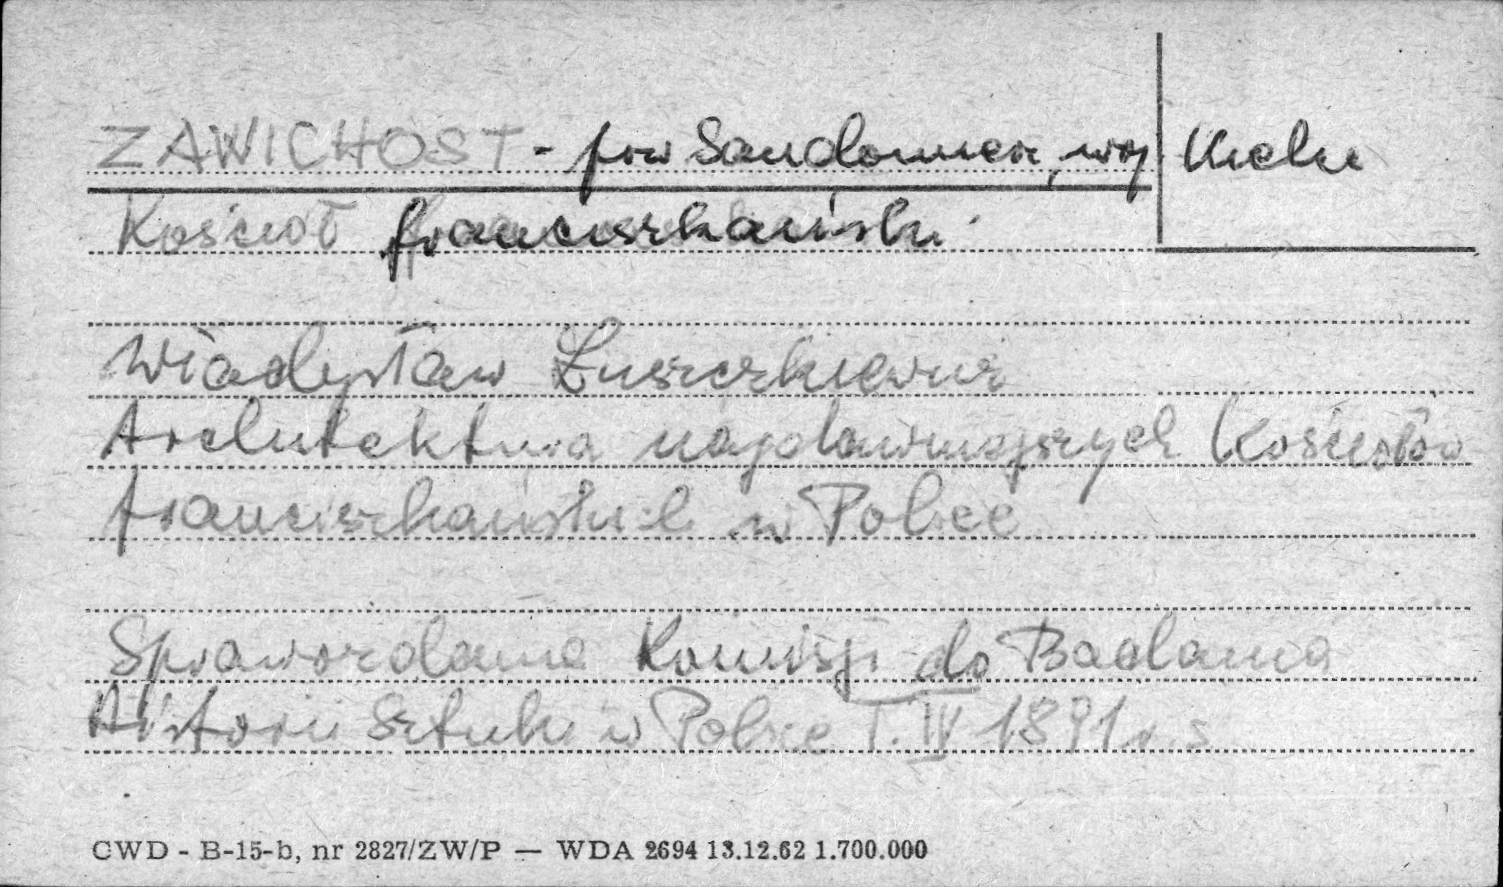 ZAWICHOST - pow Sandomierz, woj Kielce
Kościół franciszkański
Władysław Łuszczkiewicz
Architektura najdawniejszych Kościołów
franciszkańskich w Polsce
Sprawozdania Komisji do Badania
Historii Sztuki w Polsce T. IV 1891 r. s
CWD - B-15-b, nr 2827/ZW/P — WDA 2694 13.12.62 1.700.000